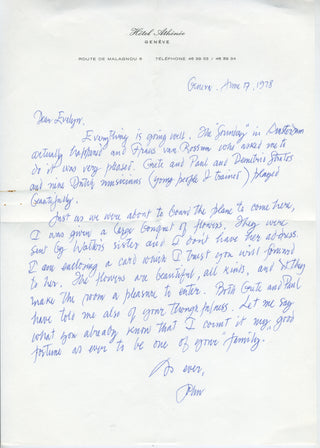 Hôtel Athénée
GENÈVE
ROUTE DE MALAGNOU 6 TÉLÉPHONE 46 39 33 / 46 39 34
Geneva June 17, 1978
Dear Evelyn,
Everything is going well. The "Sunday" in Amsterdam
actually happened and Frans van Rossum who asked me to
do it was very pleased. Grete and Paul and Demetrio Stratos
and nine Dutch musicians (young people I trained) played
beautifully.
Just as we were about to board the plane to come here,
I was given a large bouquet of flowers. They were
sent by sister and I don't have her address.
I am enclosing a card which I trust you will forward
to her. The flowers are beautiful, all kinds, and they
make the room a pleasure to enter. Both Grete and Paul
have told me also of your thoughtfulness. Let me say
what you already know that I count it my good
fortune as ever to be one of your "family".
As ever,
John